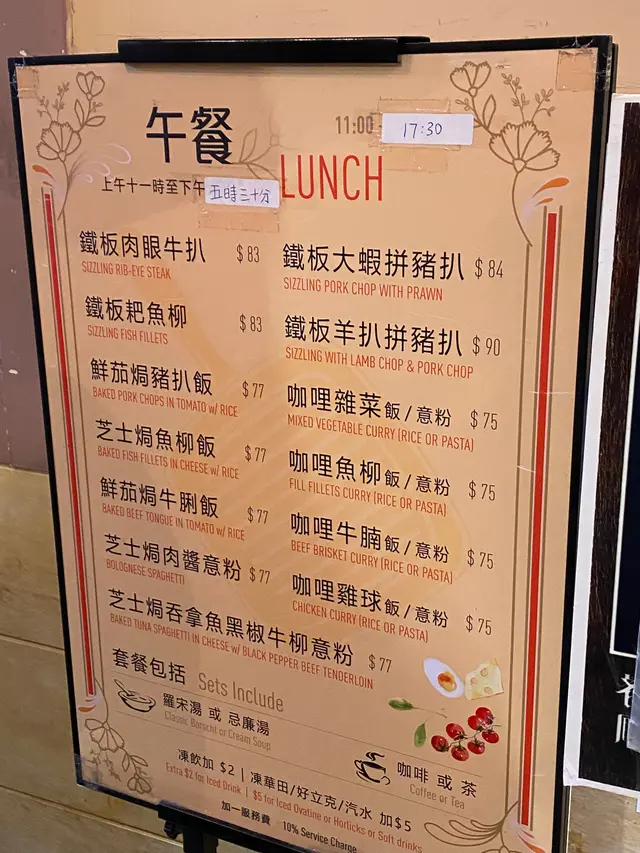 午餐
11:00 - 17:30
上午十一時至下午五時三十分
LUNCH
鐵板肉眼牛扒 $83
SIZZLING RIB-EYE STEAK
鐵板耙魚柳 $83
SIZZLING FISH FILLETS
鮮茄焗豬扒飯 $77
BAKED PORK CHOPS IN TOMATO w/ RICE
芝士焗魚柳飯 $77
BAKED FISH FILLETS IN CHEESE w/ RICE
鮮茄焗牛脷飯 $77
BAKED BEEF TONGUE IN TOMATO w/ RICE
芝士焗肉醬意粉 $77
BOLOGNESE SPAGHETTI
芝士焗吞拿魚黑椒牛柳意粉 $77
BAKED TUNA SPAGHETTI IN CHEESE w/ BLACK PEPPER BEEF TENDERLOIN
鐵板大蝦拼豬扒 $84
SIZZLING PORK CHOP WITH PRAWN
鐵板羊扒拼豬扒 $90
SIZZLING WITH LAMB CHOP & PORK CHOP
咖哩雜菜飯/意粉 $75
MIXED VEGETABLE CURRY (RICE OR PASTA)
咖哩魚柳飯/意粉 $75
FILL FILLETS CURRY (RICE OR PASTA)
咖哩牛腩飯/意粉 $75
BEEF BRISKET CURRY (RICE OR PASTA)
咖哩雞球飯/意粉 $75
CHICKEN CURRY (RICE OR PASTA)
套餐包括 Sets Include
羅宋湯 或 忌廉湯
Classic Borscht or Cream Soup
咖啡 或 茶
Coffee or Tea
凍飲加 $2 | 凍華田/好立克/汽水 加$5
Extra $2 for Iced Drink | $5 for Iced Ovaltine or Horlicks or Soft drinks
加一服務費 10% Service Charge